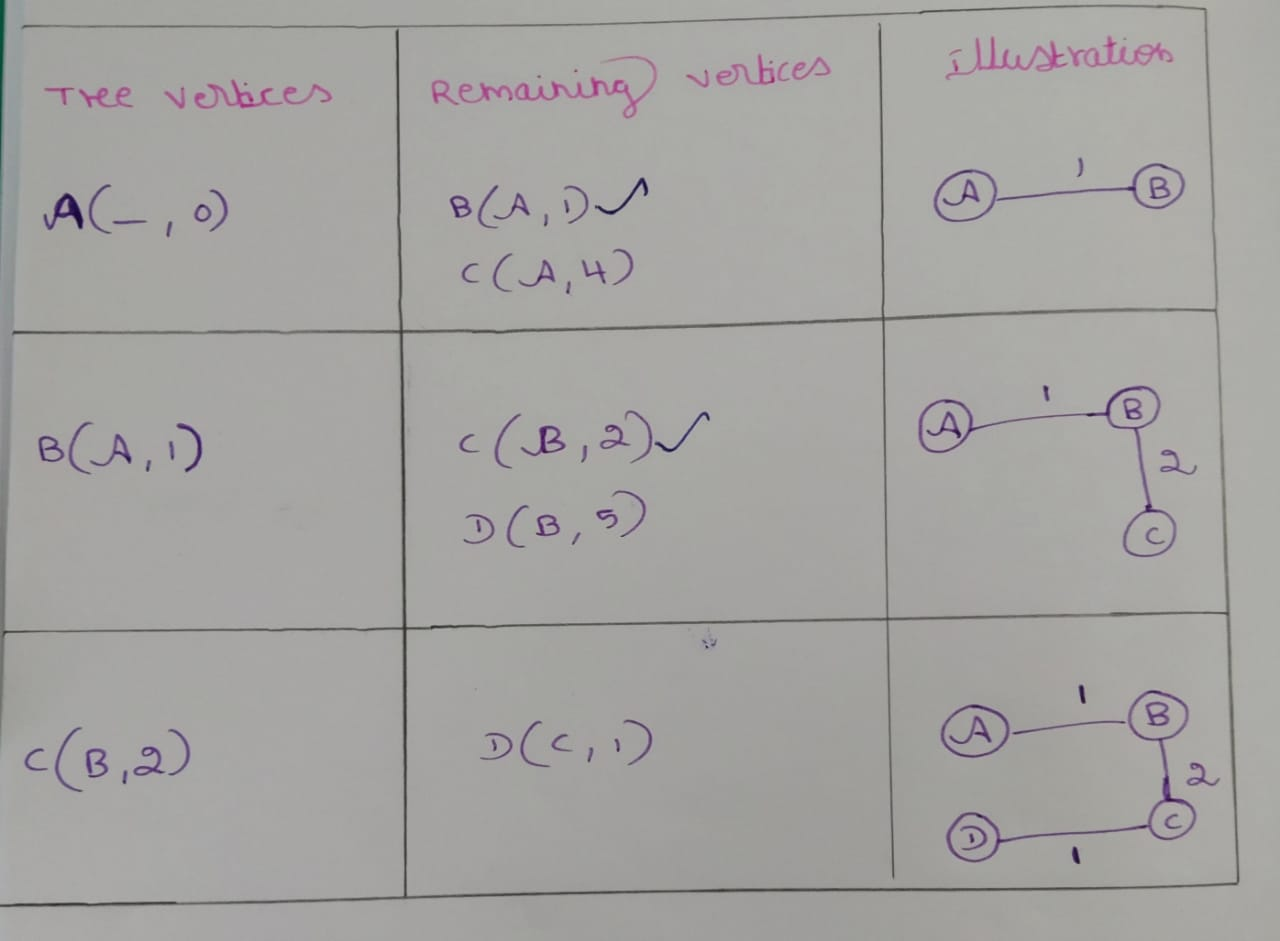 Tree vertices
Remaining vertices
illustration
A(–, 0)
B(A, 1) ✓
C(A, 4)
A 1 B
B(A, 1)
C(B, 2) ✓
D(B, 5)
A 1 B
2
C
C(B, 2)
D(C, 1)
A 1 B
2
D 1 C